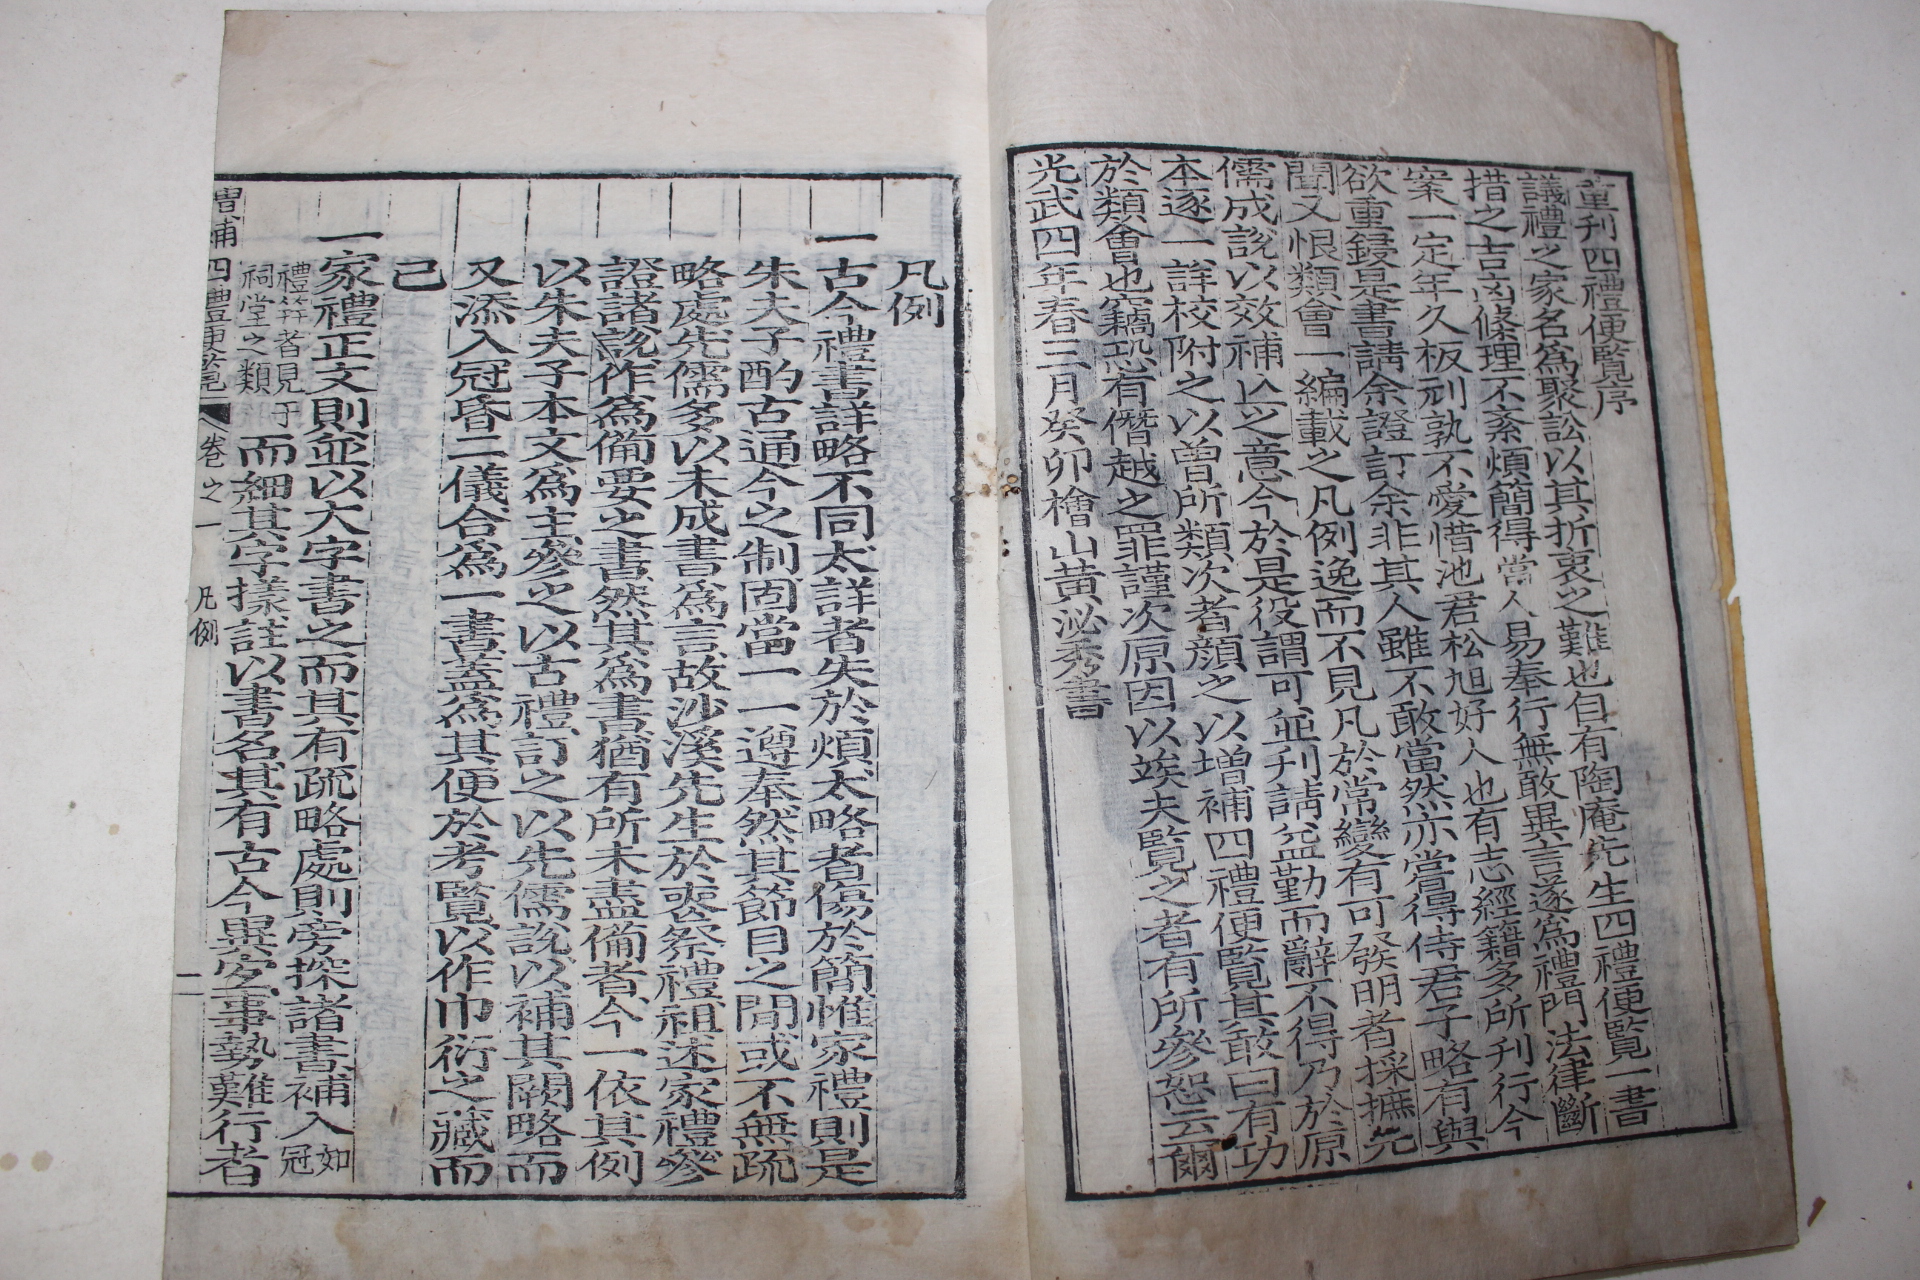 重刊四禮便覽序
議禮之家名爲聚訟以其折衷之難也自有陶庵先生四禮便覽一書
措之吉凶條理不紊煩簡得當人易奉行無敢異言遂爲禮門法律斷
案一定年久板刓孰不愛惜池君松旭好人也有志經籍多所刊行今
欲重鋟是書請余證訂余非其人雖不敢當然亦嘗得侍君子略有與
聞又恨類會一編載之凡例逸而不見凡於常變有可發明者採摭先
儒成說以效補亡之意今於是役謂可並刊請益勤而辭不得乃於原
本逐一詳校附之以曾所類次者顏之以增補四禮便覽其敢曰有功
於類會也竊恐有僭越之罪謹次原因以竢夫覽之者有所參恕云爾
光武四年春三月癸卯檜山黃泌秀書
凡例
一古今禮書詳略不同太詳者失於煩太略者傷於簡惟家禮則是
朱夫子酌古通今之制固當一一遵奉然其節目之間或不無疏
略處先儒多以未成書爲言故沙溪先生於喪祭禮祖述家禮參
證諸說作爲備要之書然其爲書猶有所未盡備者今一依其例
以朱夫子本文爲主參之以古禮訂之以先儒說以補其闕略而
又添入冠昏二儀合爲一書蓋爲其便於考覽以作巾衍之藏而
已
一家禮正文則並以大字書之而其有疏略處則旁採諸書補入如冠
禮笄者見于祠堂之類而細其字樣註以書名其有古今異宜事勢難行者
增補四禮便覽 卷之一 凡例 二